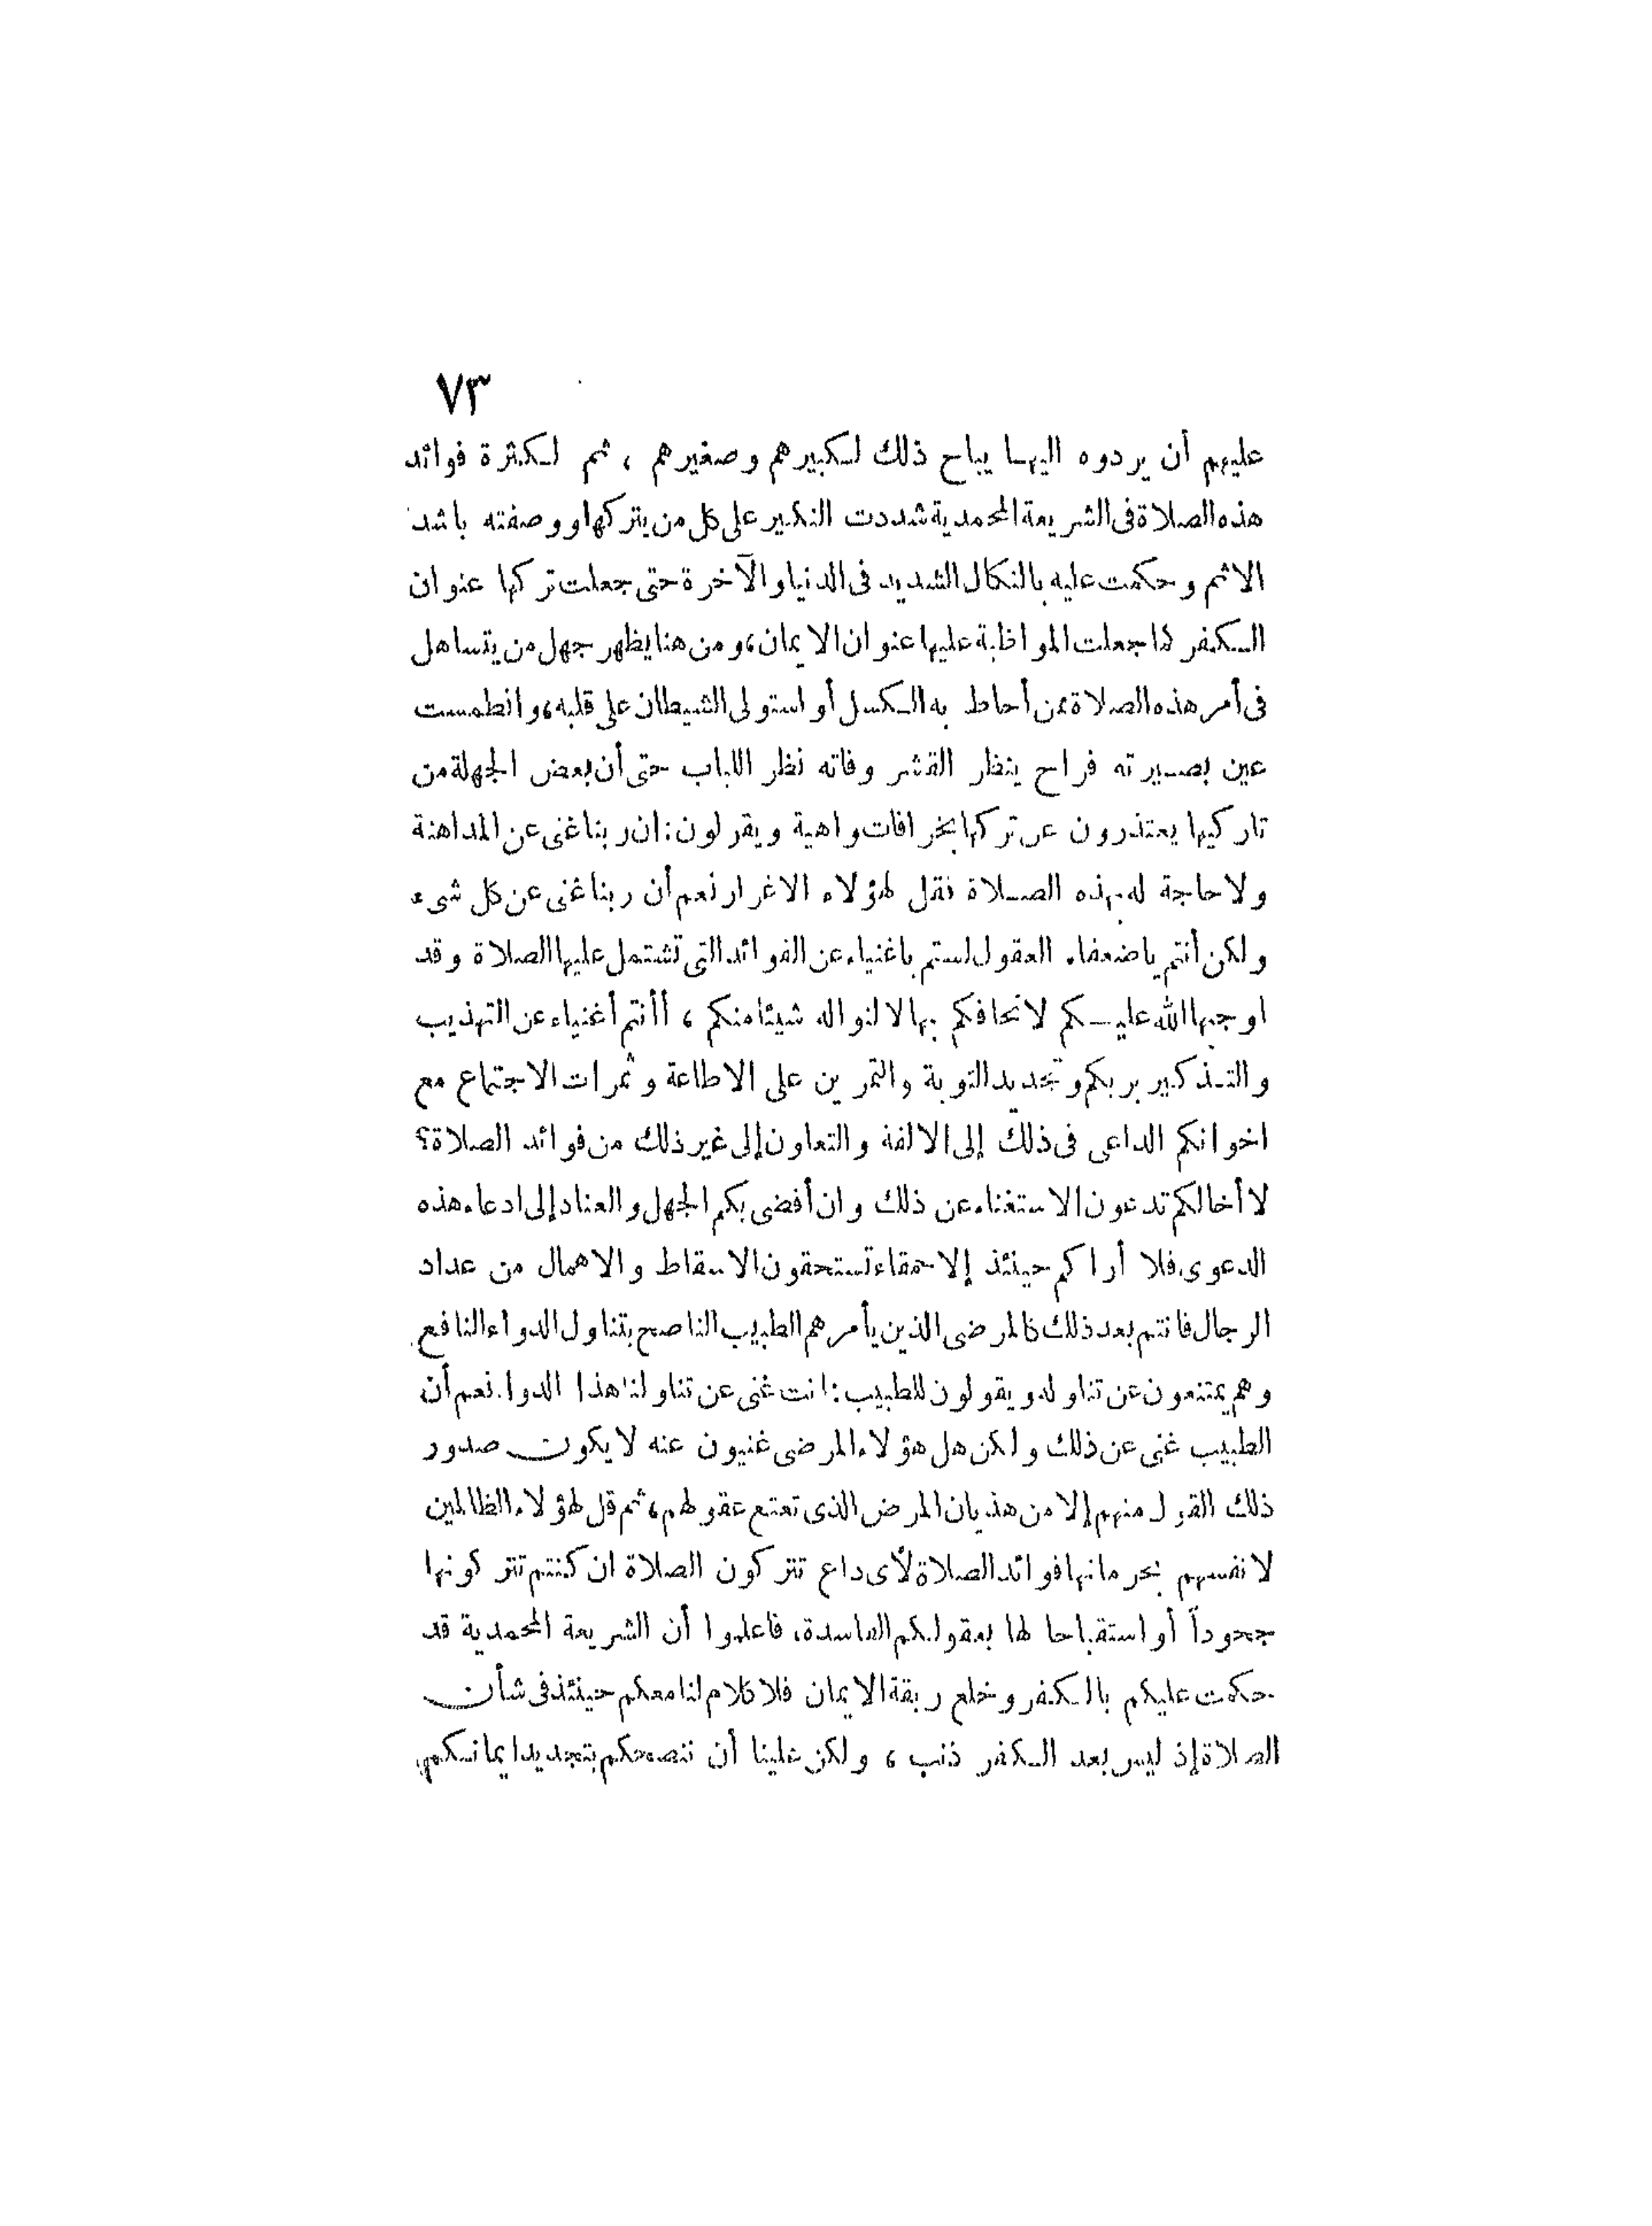 ٧٣
عليهم أن يردوه اليها يباح ذلك لكبيرهم وصغيرهم ، ثم لكثرة فوائد
هذه الصلاة فى الشريعة المحمدية شددت النكير على كل من يتركها ووصفته باشد
الاثم وحكمت عليه بالنكال الشديد فى الدنيا والآخرة حتى جعلت تركها عنوان
الكفر كما جعلت المواظبة عليها عنوان الايمان، ومن هنا يظهر جهل من يتساهل
فى أمر هذه الصلاة ممن أحاط به الكسل أو استولى الشيطان على قلبه، وانطمست
عين بصيرته فراح ينظر القشر وفاته نظر اللباب حتى أن بعض الجهلة من
تاركيها يعتذرون عن تركها بخرافات واهية ويقولون: ان ربنا غنى عن المداهنة
ولا حاجة له بهذه الصلاة فقل لهؤلاء الاغرار نعم أن ربنا غنى عن كل شىء
ولكن أنتم ياضعفاء العقول لستم باغنياء عن الفوائد التى تشتمل عليها الصلاة وقد
اوجبها الله عليكم لاتحافكم بها لا لنواله شيئا منكم ، أأنتم أغنياء عن التهذيب
والتذكير بربكم وتجديد التوبة والتمرين على الاطاعة وثمرات الاجتماع مع
اخوانكم الداعى فى ذلك إلى الالفة والتعاون إلى غير ذلك من فوائد الصلاة؟
لا أخالكم تدعون الاستغناء عن ذلك وان أفضى بكم الجهل والعناد إلى ادعاء هذه
الدعوى فلا أراكم حينئذ إلا حمقاء تستحقون الاسقاط والاهمال من عداد
الرجال فانتم بعد ذلك كالمرضى الذين يأمرهم الطبيب الناصح بتناول الدواء النافع
وهم يمتنعون عن تناوله ويقولون للطبيب: انت غنى عن تناولنا هذا الدواء نعم أن
الطبيب غنى عن ذلك ولكن هل هؤلاء المرضى غنيون عنه لا يكون صدور
ذلك القول منهم إلا من هذيان المرض الذى تعتع عقولهم، ثم قل لهؤلاء الظالمين
لانفسهم بحرمانها فوائد الصلاة لأى داع تتركون الصلاة ان كنتم تتركونها
جحوداً أو استقباحا لها بعقولكم الفاسدة، فاعلموا أن الشريعة المحمدية قد
حكمت عليكم بالكفر وخلع ربقة الايمان فلا كلام لنا معكم حينئذ فى شأن
الصلاة إذ ليس بعد الكفر ذنب ، ولكن علينا أن ننصحكم بتجديد ايمانكم